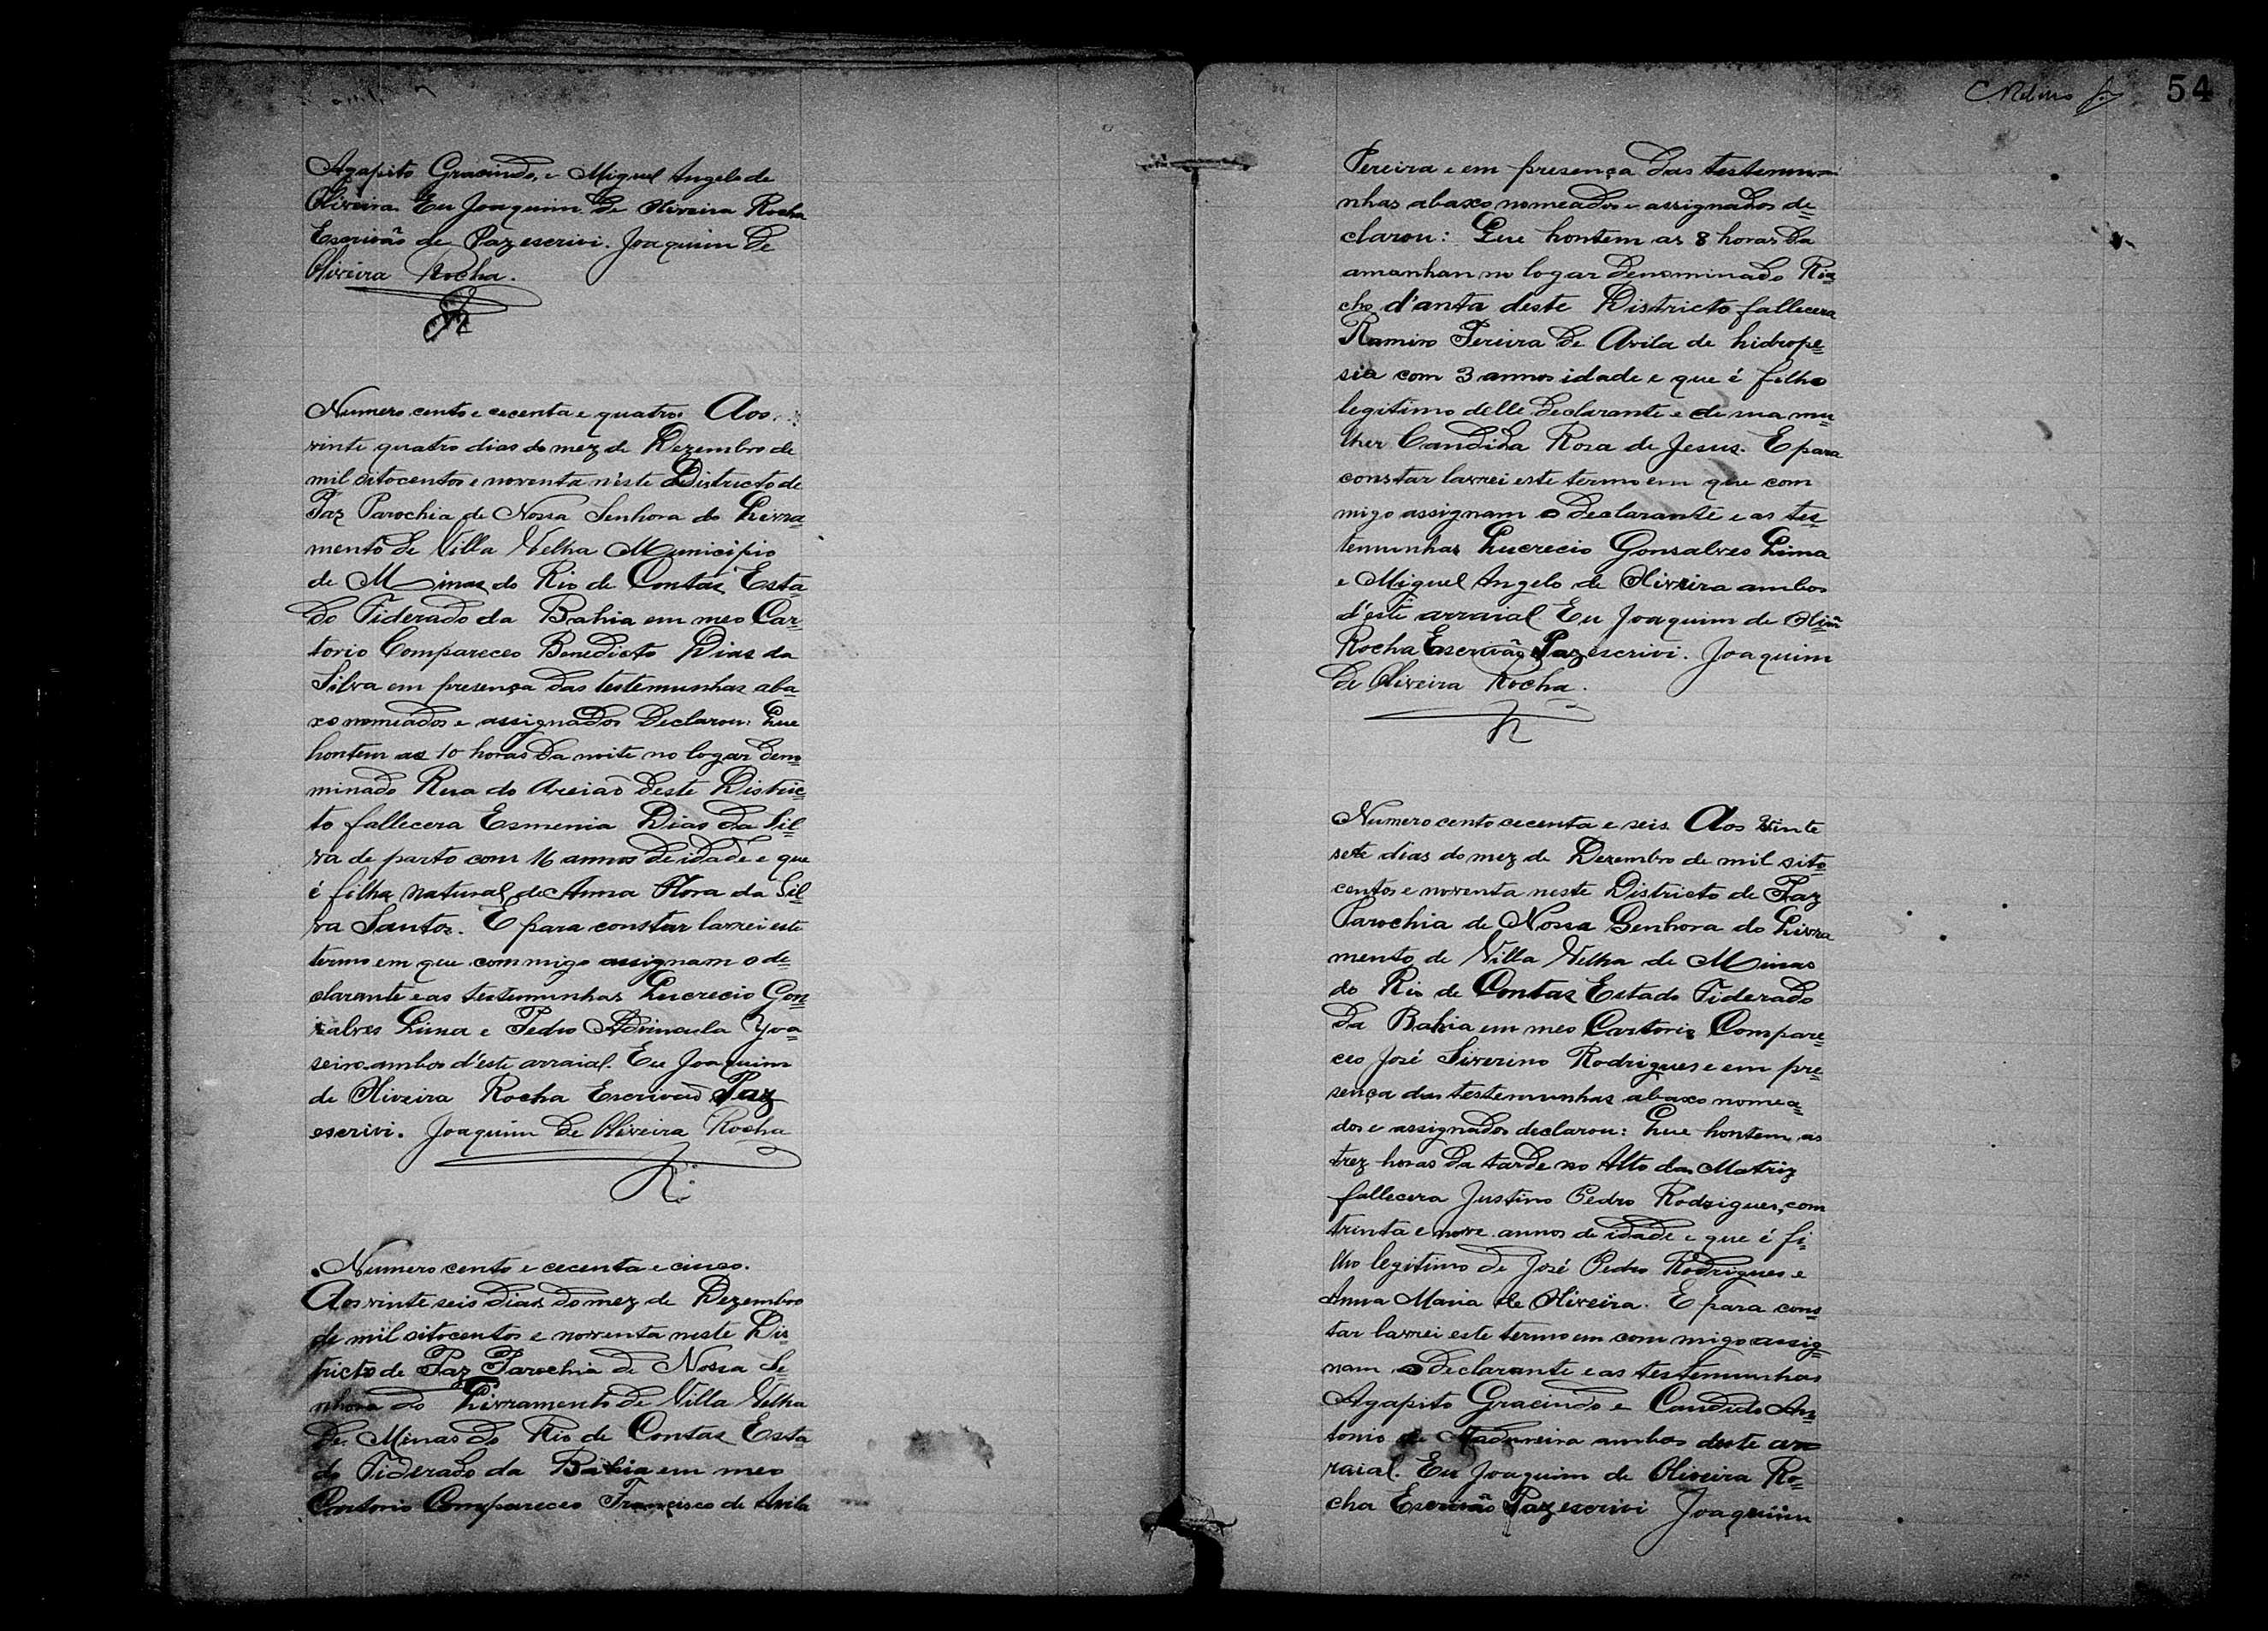 Agapito Gracindo, e Miguel Angelo de
Oliveira. Eu Joaquim de Oliveira Rocha
Escrivão de Paz escrivi. Joaquim de
Oliveira Rocha.
Numero cento e cecenta e quatro. Aos
vinte quatro dias do mez de Dezembro de
mil oitocentos e noventa n'este Districto de
Paz Parochia de Nossa Senhora do Livra=
mento de Villa Velha Municipio
de Minas do Rio de Contas Esta=
do Fiderado da Bahia em meo Car=
torio Compareceo Benedicto Dias da
Silva em presença das testemunhas aba=
xo nomeados e assignados Declarou: Que
hontem as 10 horas da noite no logar deno=
minado Rua do Areião deste Distric=
to fallecera Esmenia Dias da Sil=
va de parto com 16 annos de idade e que
é filha natural de Anna Flora da Sil=
va Santos. E para constar lavrei este
termo em que commigo assignam o de=
clarante e as testemunhas Lucrecio Gon=
salves Lima e Pedro Advincula
ambos d'este arraial. Eu Joaquim
de Oliveira Rocha Escrivão Paz
escrivi. Joaquim de Oliveira Rocha
R.
Numero cento e cecenta e cinco.
Aos vinte seis dias do mez de Dezembro
de mil oitocentos e novventa neste Dis=
tricto de Paz Parochia de Nossa Se=
nhora do Livramento de Villa Velha
de Minas do Rio de Contas Esta=
do Fiderado da Bahia em meo
Cartorio Compareceo Francisco de Avila
54
Pereira e em presença das testemu=
nhas abaxo nomeados e assignados de=
clarou: Que hontem as 8 horas da
amanhan no logar denominado Ria=
cho d'anta deste Districto fallecera
Ramiro Pereira de Avila de hidrope=
sia com 3 annos idade e que é filho
legitimo delle declarante e de sua mu=
lher Candida Rosa de Jesus. E para
constar lavrei este termo em que com
migo assignam o declarante e as tes=
temunhas Lucrecio Gonsalves Lima
e Miguel Angelo de Oliveira ambos
d'este arraial Eu Joaquim de Olivrª
Rocha Escrivão Paz escrivi. Joaquim
de Oliveira Rocha.
R
Numero cento cecenta e seis. Aos vinte
sete dias do mez de Dezembro de mil oito
centos e noventa neste Districto de Paz
Parochia de Nossa Senhora do Livra
mento de Villa Velha de Minas
do Rio de Contas Estado Fiderado
da Bahia em meo Cartorio Compare=
ceo José Siverino Rodrigues e em pre=
sença das testemunhas abaxo nomea=
dos e assignados declarou: Que hontem as
trez horas da tarde no Alto da Matriz
fallecera Justino Pedro Rodrigues, com
trinta e nove annos de idade e que é fi=
lho legitimo de José Pedro Rodrigues e
Anna Maria de Oliveira. E para cons=
tar lavrei este termo em com migo assig=
nam o declarante e as testemunhas
Agapito Gracindo e Candido An=
tonio de Madureira ambos deste ar=
raial. Eu Joaquim de Oliveira Ro=
cha Escrivão Paz escrivi Joaquim